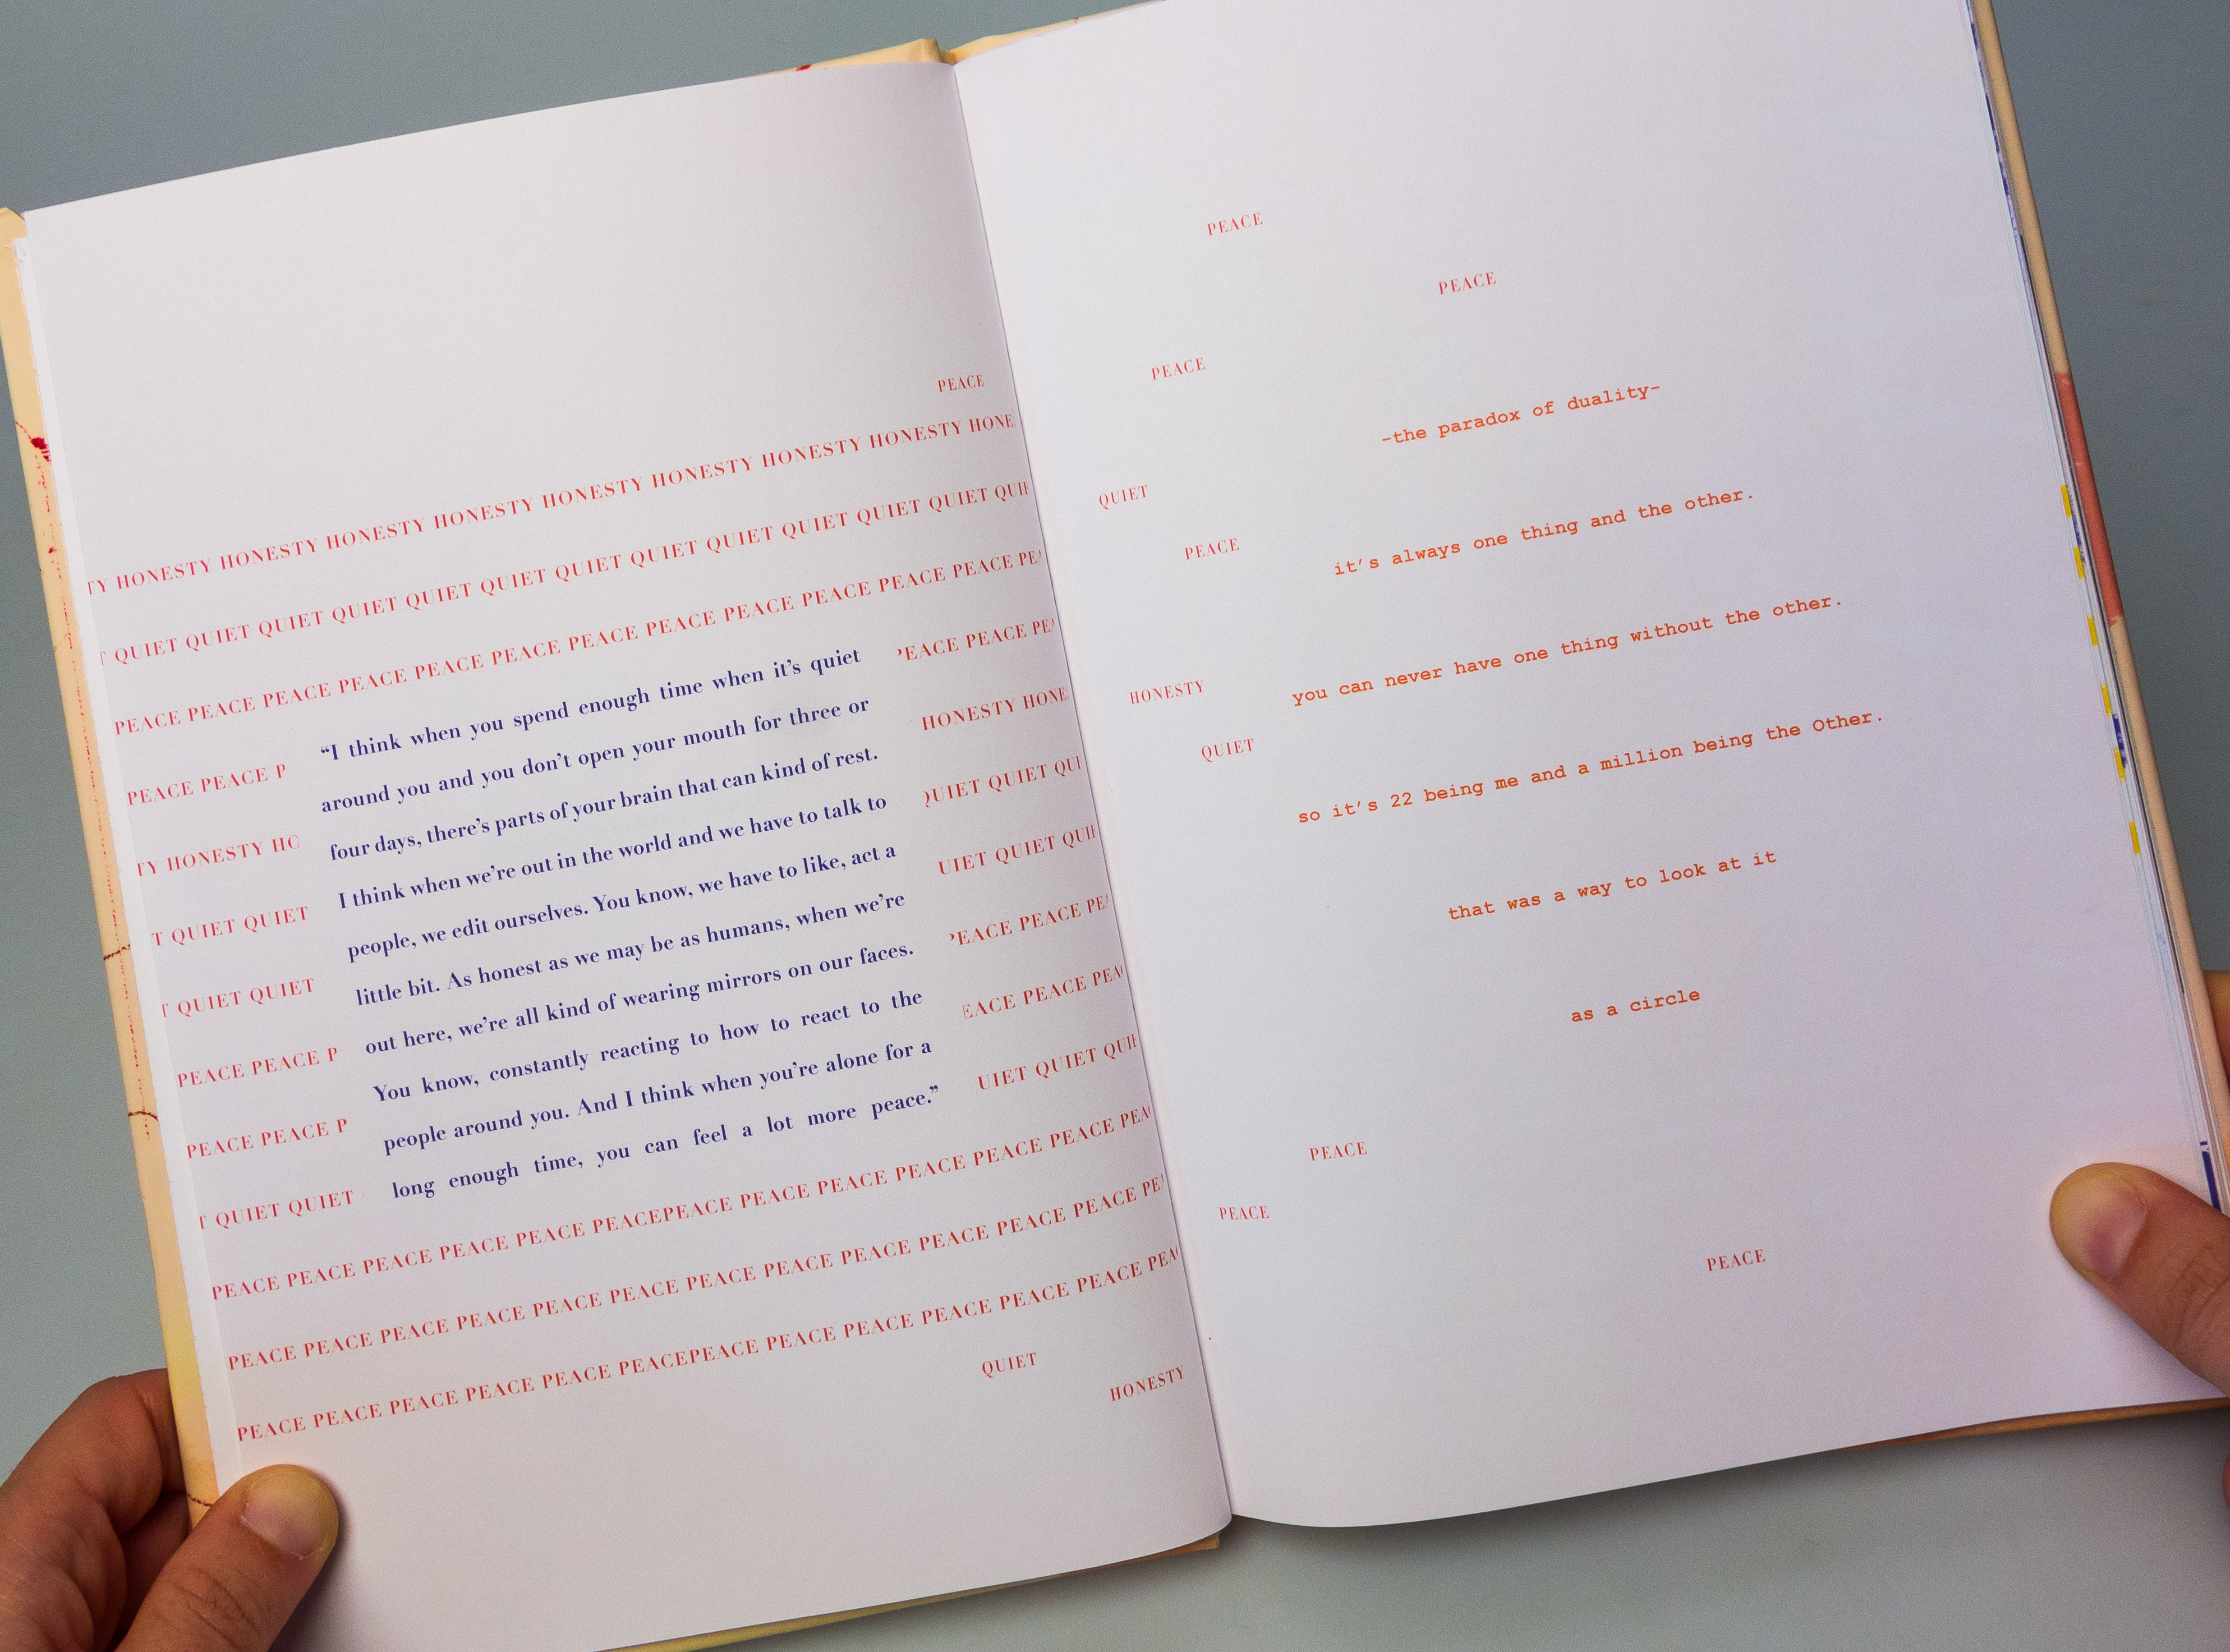 PEACE
TY HONESTY HONESTY HONESTY HONESTY HONESTY HONESTY HONESTY HONESTY HONE
T QUIET QUIET QUIET QUIET QUIET QUIET QUIET QUIET QUIET QUIET QUIET QUIET QUIE
PEACE PEACE PEACE PEACE PEACE PEACE PEACE PEACE PEACE PEACE PEACE PEACE PEA
PEACE PEACE P
TY HONESTY HO
T QUIET QUIET
T QUIET QUIET
PEACE PEACE P
PEACE PEACE P
T QUIET QUIET
“I think when you spend enough time when it’s quiet
around you and you don’t open your mouth for three or
four days, there’s parts of your brain that can kind of rest.
I think when we’re out in the world and we have to talk to
people, we edit ourselves. You know, we have to like, act a
little bit. As honest as we may be as humans, when we’re
out here, we’re all kind of wearing mirrors on our faces.
You know, constantly reacting to how to react to the
people around you. And I think when you’re alone for a
long enough time, you can feel a lot more peace.”
PEACE PEACE PEA
HONESTY HONE
QUIET QUIET QUI
UIET QUIET QUIE
PEACE PEACE PEA
EACE PEACE PEAC
UIET QUIET QUIE
PEACE PEACE PEACE PEACE PEACE PEACEPEACE PEACE PEACE PEACE PEACE PEACE PEAC
PEACE PEACE PEACE PEACE PEACE PEACE PEACE PEACE PEACE PEACE PEACE PEACE PE
PEACE PEACE PEACE PEACE PEACE PEACEPEACE PEACE PEACE PEACE PEACE PEACE PEA
QUIET
HONESTY
PEACE
PEACE
PEACE
-the paradox of duality-
QUIET
PEACE
it's always one thing and the other.
HONESTY
you can never have one thing without the other.
QUIET
so it's 22 being me and a million being the Other.
that was a way to look at it
as a circle
PEACE
PEACE
PEACE